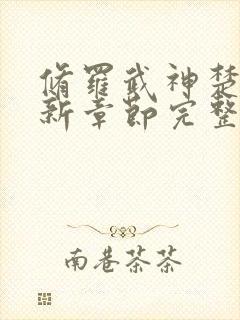 脩羅武神楚
新章節完整
南巷茶茶